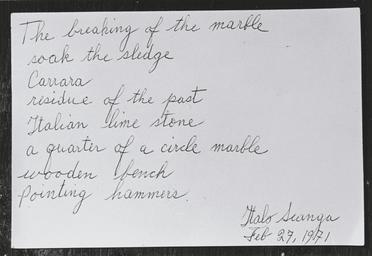 The breaking of the marble
soak the sledge
Carrara
risidue of the past
Italian lime stone
a quarter of a circle marble
wooden bench
Pointing hammers.
Italo Scanga
Feb 27, 1971